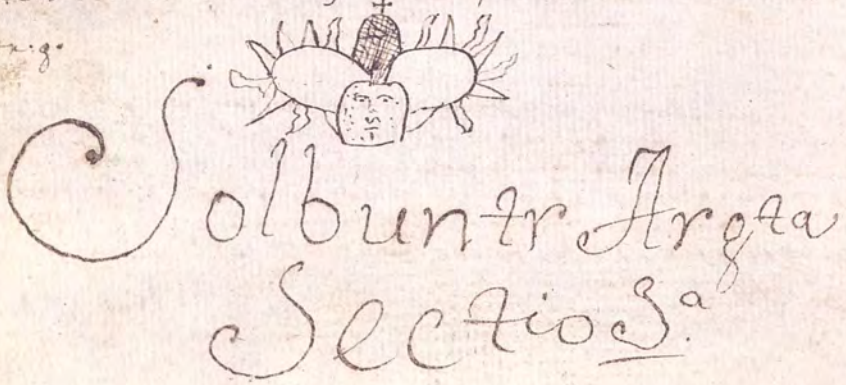 n. g.
Solbuntr Argta
Sectio 3.a